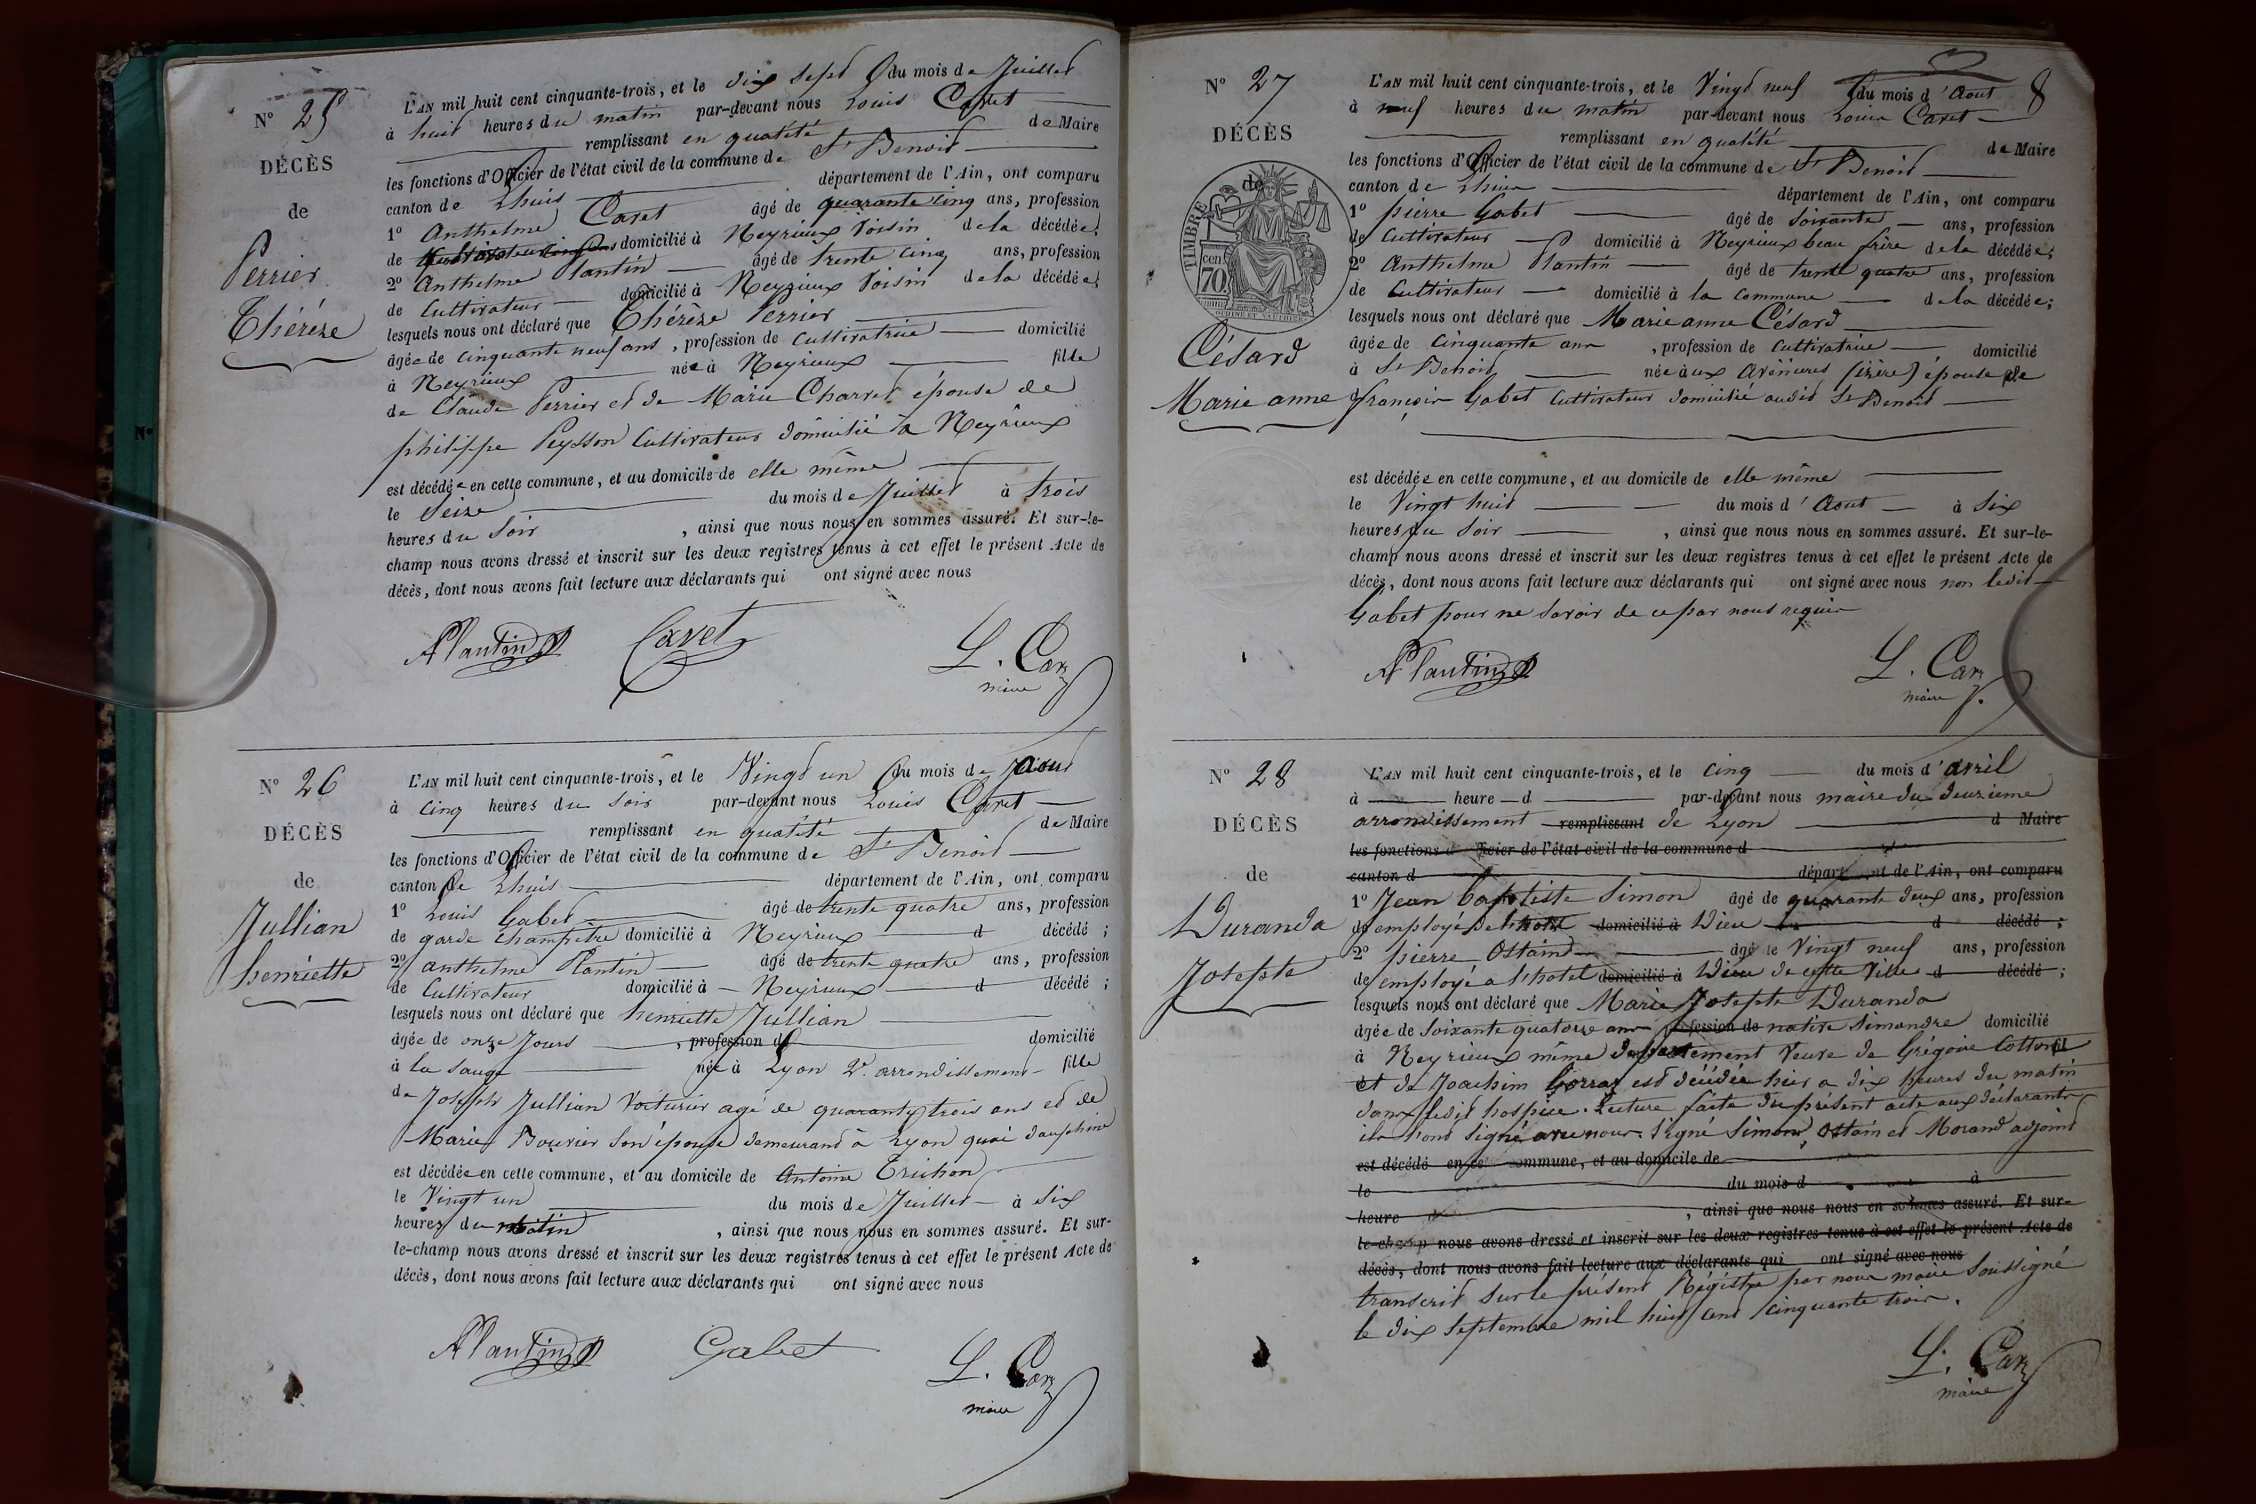 N° 25
DÉCÈS
de
Perrier
Thérèze
L'AN mil huit cent cinquante-trois, et le dix Sept du mois de Juillet
à huit heures du matin par-devant nous Louis Caret
remplissant en qualité de Maire
les fonctions d'Officier de l'état civil de la commune de St Benoit
canton de Lhuis département de l'Ain, ont comparu
1° Anthelme Caret âgé de quarante cinq ans, profession
de domicilié à Neyrieux Voisin de la décédée;
2° Anthelme Plantin âgé de trente cinq ans, profession
de Cultivateur domicilié à Neyrieux Voisin de la décédée;
lesquels nous ont déclaré que Thérèze Perrier
âgée de cinquante neuf ans, profession de Cultivatrice domicilié
à Neyrieux née à Neyrieux fille
de Claude Perrier et de Marie Charret épouse de
philippe Peysson Cultivateur domicilié à Neyrieux
est décédée en cette commune, et au domicile de elle même
le Seize du mois de Juillet à trois
heures du Soir, ainsi que nous nous en sommes assuré. Et sur-le-
champ nous avons dressé et inscrit sur les deux registres tenus à cet effet le présent Acte de
décès, dont nous avons fait lecture aux déclarants qui ont signé avec nous
APlantin Cavet L. Car
maire
N° 26
DÉCÈS
de
Jullian
henriette
L'AN mil huit cent cinquante-trois, et le Vingt un du mois de
à cinq heures du Soir par-devant nous Louis Caret
remplissant en qualité de Maire
les fonctions d'Officier de l'état civil de la commune de St Benoit
canton de Lhuis département de l'Ain, ont comparu
1° Louis Gabet âgé de trente quatre ans, profession
de garde champêtre domicilié à Neyrieux d décédé;
2° anthelme Plantin âgé de trente quatre ans, profession
de Cultivateur domicilié à Neyrieux d décédé;
lesquels nous ont déclaré que henriette Jullian
âgée de onze Jours, profession d domicilié
à la Sauge née à Lyon 2e arrondissement fille
de Joseph Jullian Voiturier agé de quarante trois ans et de
Marie Bouvier Son épouse demeurand à Lyon quai dauphin
est décédée en cette commune, et au domicile de Antoine Trichon
le Vingt un du mois de Juillet à Six
heures du matin, ainsi que nous nous en sommes assuré. Et sur-
le-champ nous avons dressé et inscrit sur les deux registres tenus à cet effet le présent Acte de
décès, dont nous avons fait lecture aux déclarants qui ont signé avec nous
APlantin Gabet L. Car
maire
8
N° 27
DÉCÈS
de
TIMBRE
70 cen
Césard
Marie anne
L'AN mil huit cent cinquante-trois, et le Vingt neuf du mois d'Aout
à neuf heures du matin par-devant nous Louis Caret
remplissant en qualité de Maire
les fonctions d'Officier de l'état civil de la commune de St Benoit
canton de Lhuis département de l'Ain, ont comparu
1° pierre Gabet âgé de Soixante ans, profession
de Cultivateur domicilié à Neyrieux beau frère de la décédée;
2° Anthelme Plantin âgé de trente quatre ans, profession
de Cultivateur domicilié à la Commune de la décédée;
lesquels nous ont déclaré que Marie anne Césard
âgée de Cinquante ans, profession de Cultivatrice domicilié
à St Benoit née aux avénieres (isère) épouse de
françois Gabet Cultivateur domicilié audit St Benoit
est décédée en cette commune, et au domicile de elle même
le Vingt huit du mois d'Aout à Six
heures du Soir, ainsi que nous nous en sommes assuré. Et sur-le-
champ nous avons dressé et inscrit sur les deux registres tenus à cet effet le présent Acte de
décès, dont nous avons fait lecture aux déclarants qui ont signé avec nous non ledit
Gabet pour ne Savoir de ce par nous requis
APlantin L. Car
maire
N° 28
DÉCÈS
de
Duranda
Josephte
L'AN mil huit cent cinquante-trois, et le Cinq du mois d'avril
à heure d par-devant nous maire du deuxieme
arrondissement remplissant de Lyon d Maire
les fonctions d'Officier de l'état civil de la commune d
canton d département de l'Ain, ont comparu
1° Jean baptiste Simon âgé de quarante deux ans, profession
de employé de l'hotel domicilié à Dieu d décédé;
2° pierre Ottain âgé de Vingt neuf ans, profession
de employé a l'hotel domicilié à Dieu de cette Ville d décédé;
lesquels nous ont déclaré que Marie Josephte Duranda
âgée de Soixante quatorze ans profession de native Simandre domicilié
à Neyrieux même departement Veuve de Grégoire
et de Joachim Gorraz est décédée hier a dix heures du matin
dans ledit hospice. Lecture faite du présent acte aux déclarants
ils l'ont Signé avec nous. Signé Simon, Ottain et Morand adjoint
est décédé en cette commune, et au domicile de
le du mois d à
heure d, ainsi que nous nous en sommes assuré. Et sur-
le-champ nous avons dressé et inscrit sur les deux registres tenus à cet effet le présent Acte de
décès, dont nous avons fait lecture aux déclarants qui ont signé avec nous
transcrit Sur le présent Régistre par nous maire Soussigné
le dix Septembre mil huit cent cinquante trois.
L. Car
maire